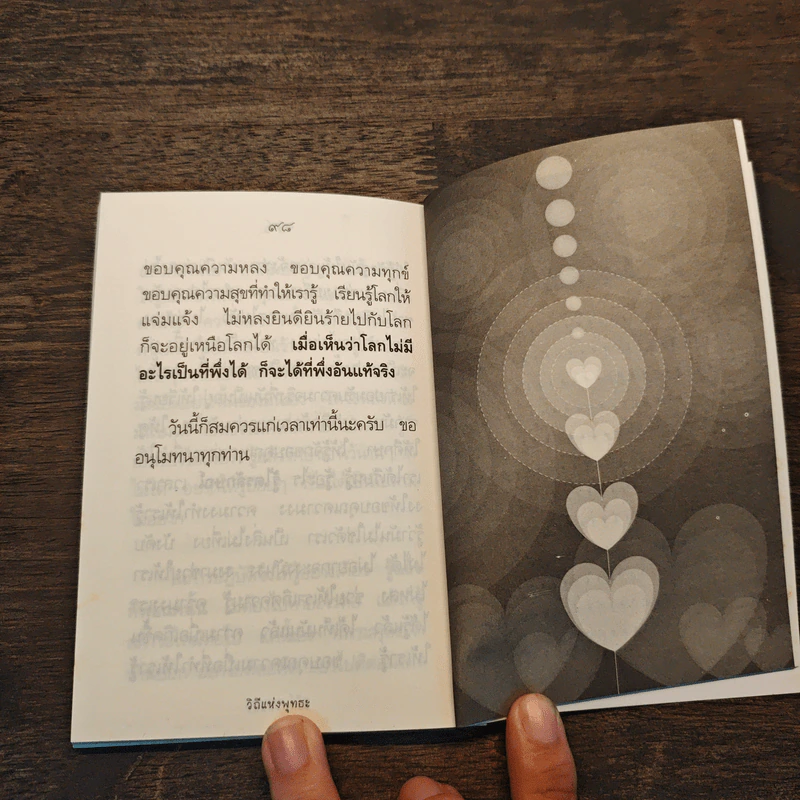 ๙๘
ขอบคุณความหลง ขอบคุณความทุกข์
ขอบคุณความสุขที่ทำให้เรารู้ เรียนรู้โลกให้
แจ่มแจ้ง ไม่หลงยินดียินร้ายไปกับโลก
ก็จะอยู่เหนือโลกได้ เมื่อเห็นว่าโลกไม่มี
อะไรเป็นที่พึ่งได้ ก็จะได้ที่พึ่งอันแท้จริง
วันนี้ก็สมควรแก่เวลาเท่านี้นะครับ ขอ
อนุโมทนาทุกท่าน
วิถีแห่งพุทธะ